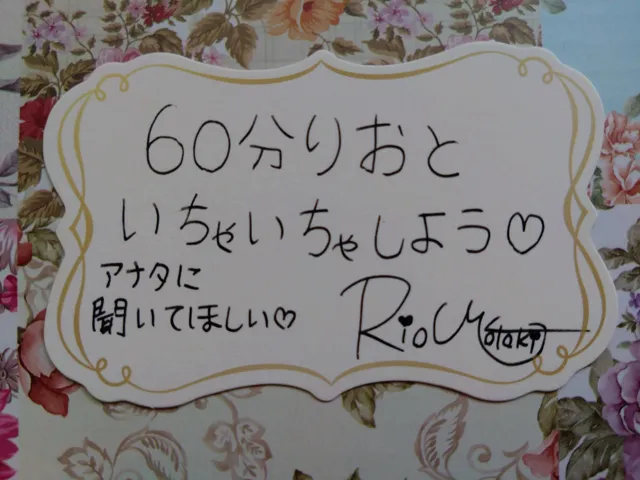 60分りおと
いちゃいちゃしよう♡
アナタに
聞いてほしい♡
Rio Motoki